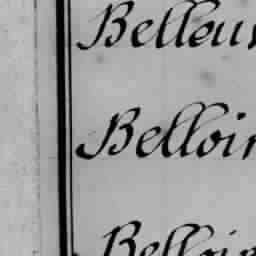 Belleur
Belloin
Belloin